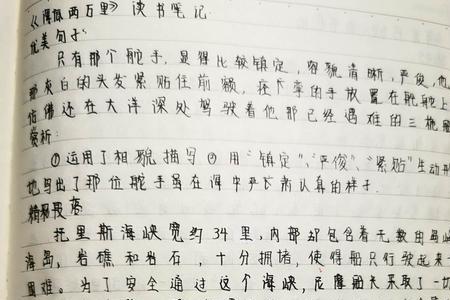 《海底两万里》读书笔记
优美句子:
只有那个舵手,显得比较镇定,容貌清晰,严俊,他
那灰白的头发紧贴住前额,痉挛的手放置在舵轮上
仿佛还在大洋深处驾驶着他那已经遇难的三桅船
赏析:
①运用了相貌描写②用“镇定”、“严俊”、“紧贴”生动形
地写出了那位舵手虽在海中严肃认真的样子.
精彩段落
托里斯海峡宽约34里,内部却包含着无数由岛屿
海岛,岩礁和岩石,十分拥堵,使得船只行驶起来
困难。为了安全通过这个海峡,尼摩船长采取了一切